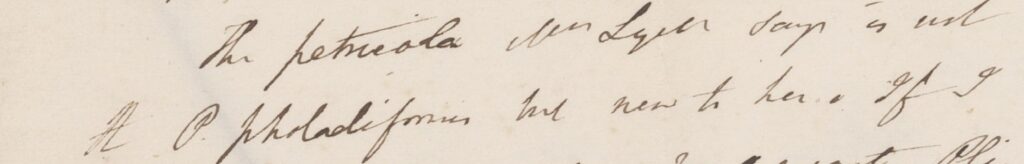 The petricola Mrs Lyell says is not
the P. pholadiformis but new to her. If I